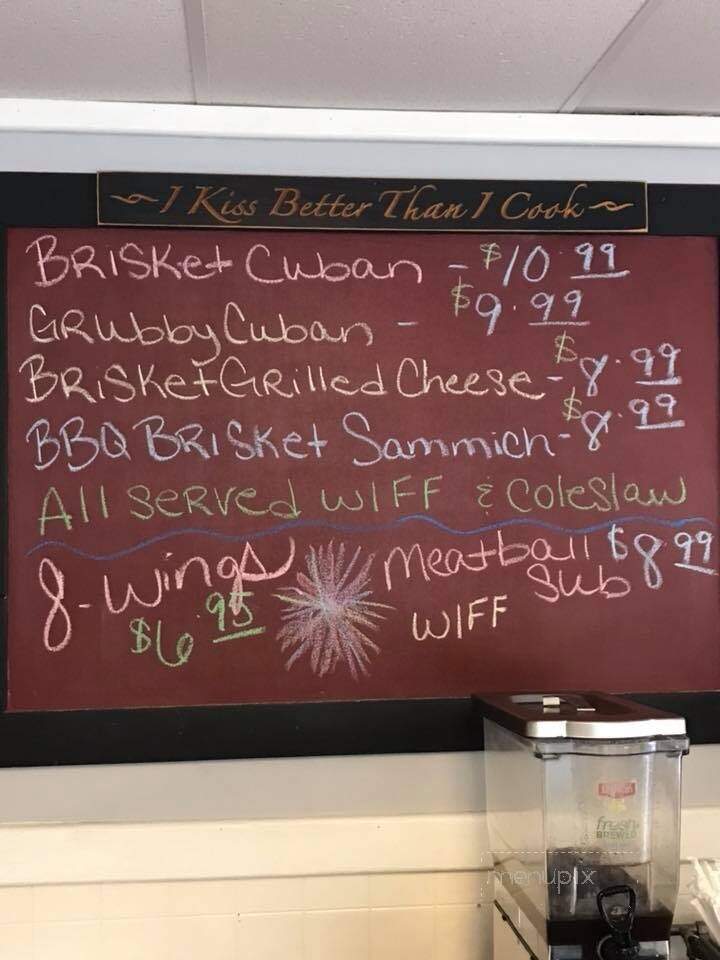 I Kiss Better Than I Cook
BRISKet Cuban - $10.99
GRubby Cuban - $9.99
BRISKet GRilled Cheese - $8.99
BBQ BRISKet Sammich - $8.99
All Served W/FF & Coleslaw
8-Wings
$6.95
Meatball Sub $8.99
W/FF
fresh
BREWED
menupix